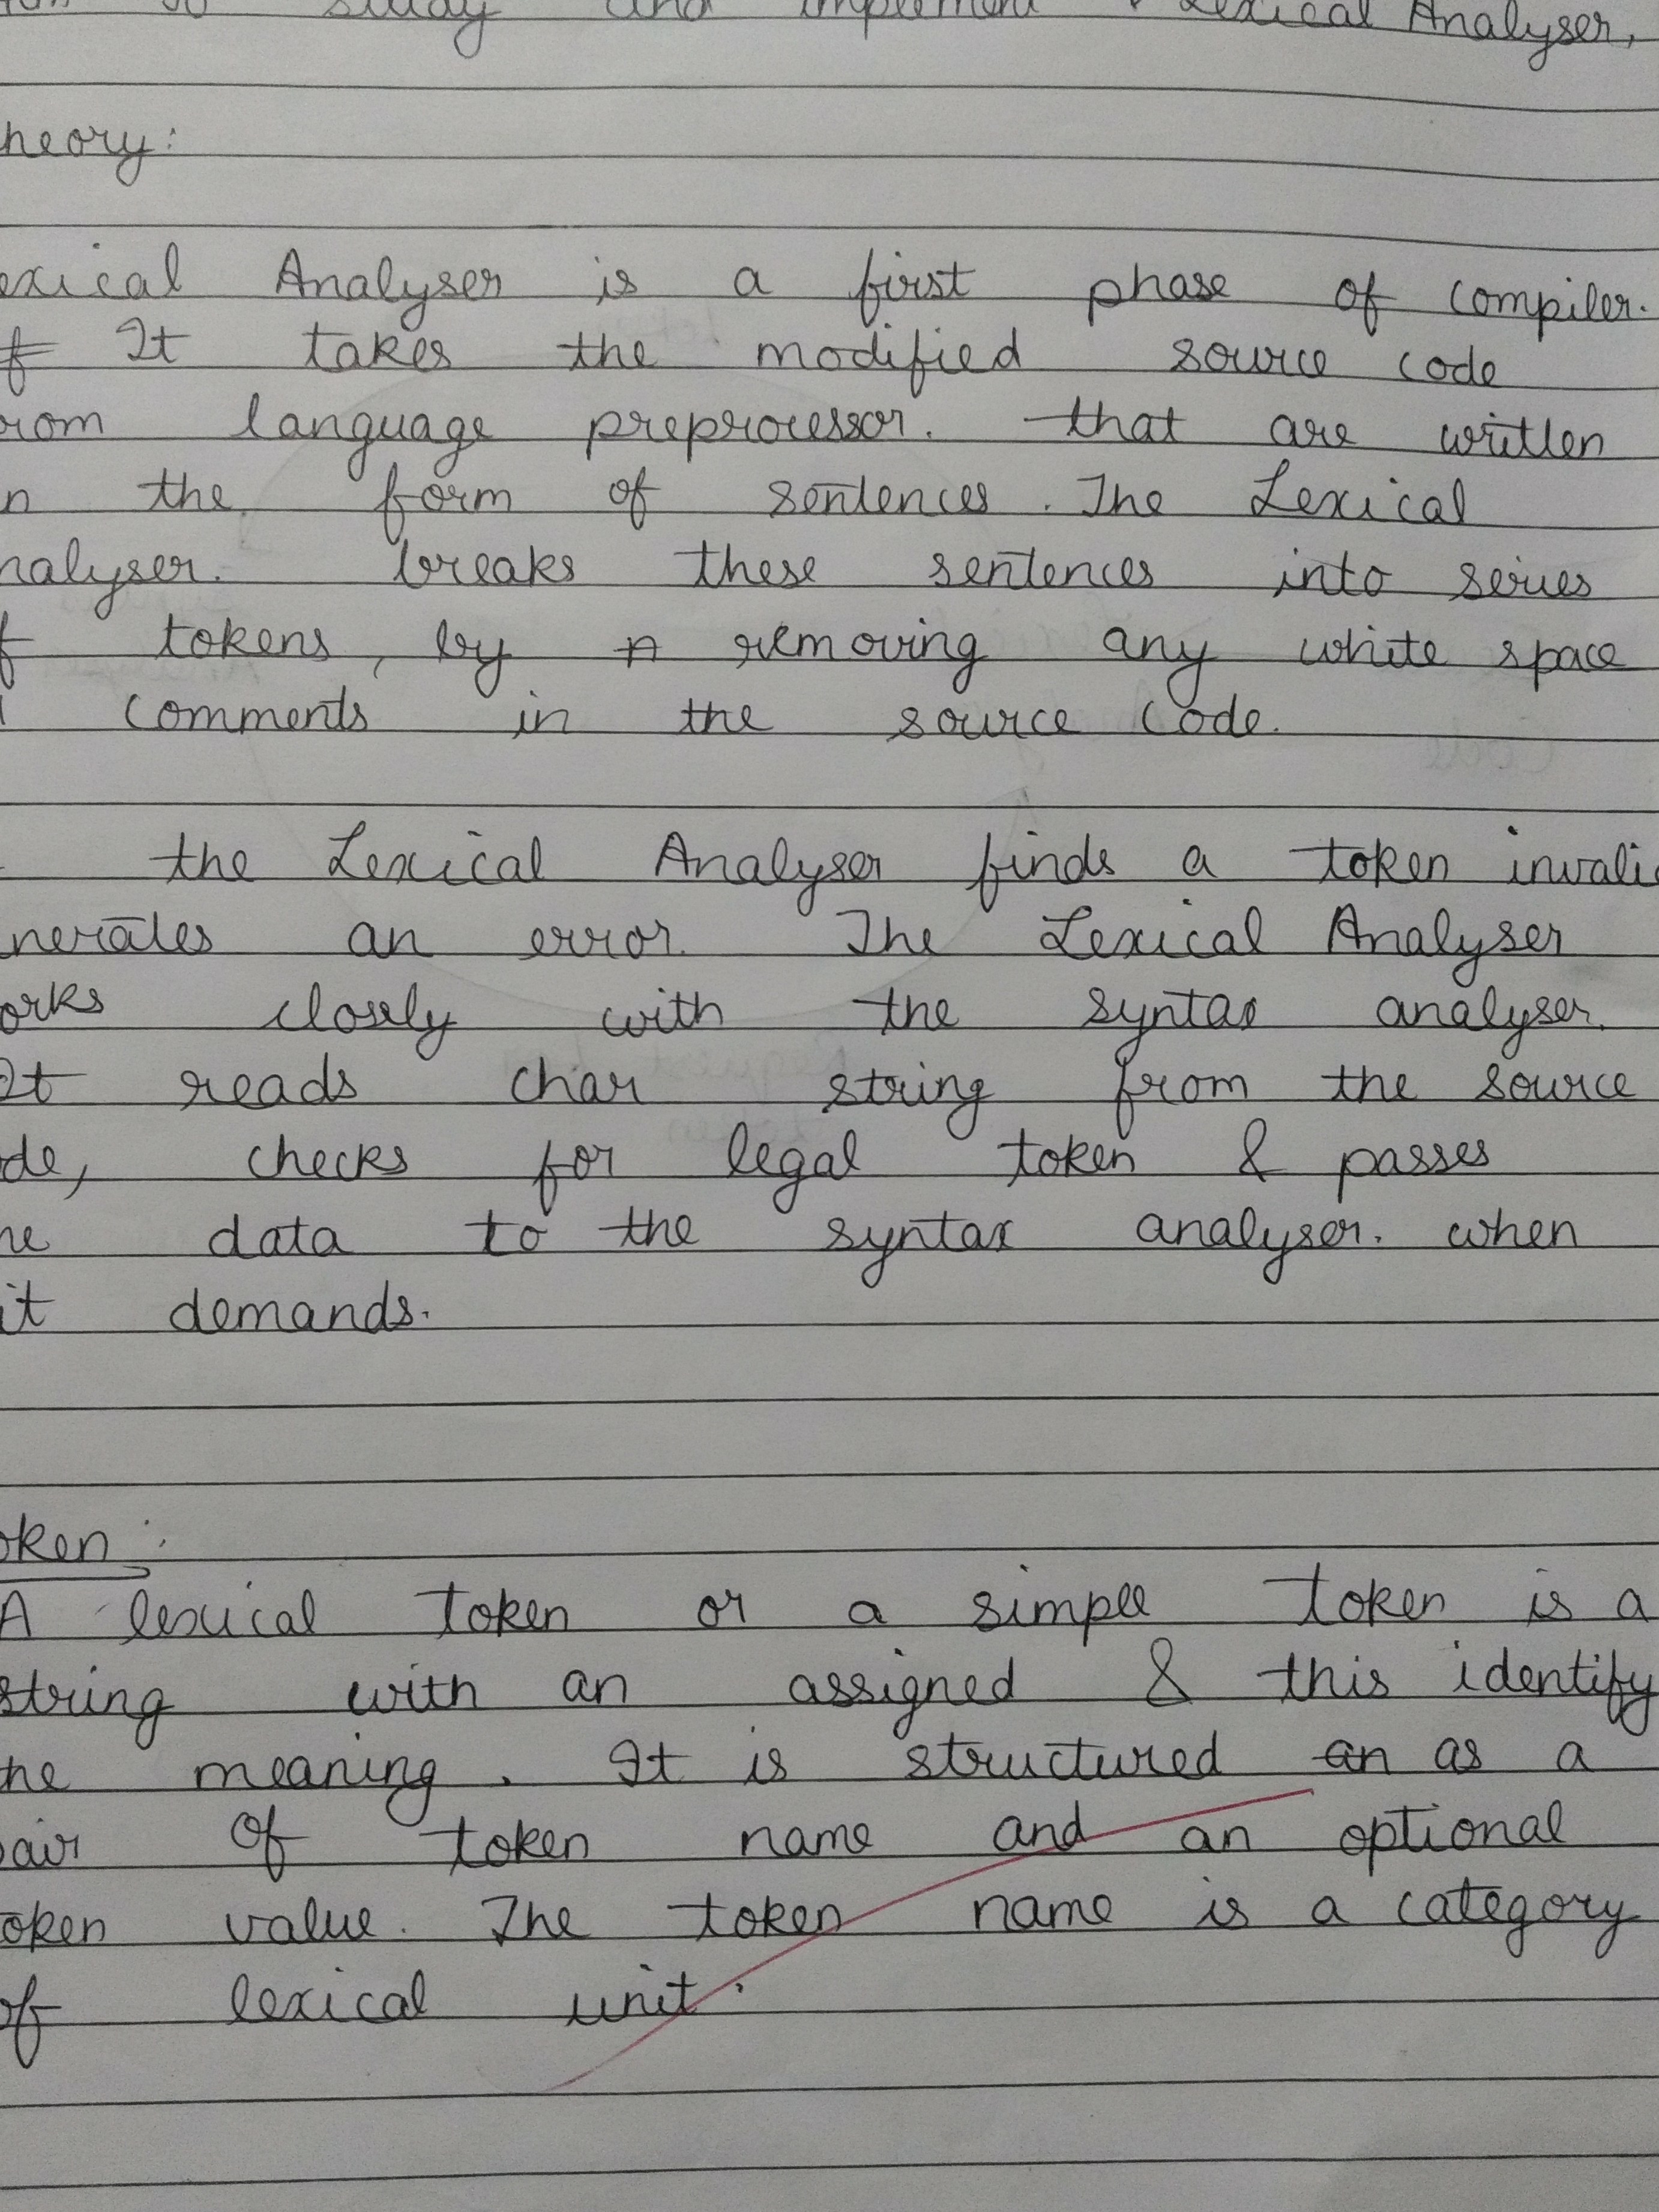 to study and implement Lexical Analyser,
heory:
exical Analyser is a first phase of compiler.
It takes the modified source code
rom language preprocessor. that are written
n the form of sentences. The Lexical
nalyser. breaks these sentences into series
f tokens, by removing any white space
comments in the source code.
the Lexical Analyser finds a token invali
nerates an error. The Lexical Analyser
orks closely with the syntax analyser.
It reads char string from the source
de, checks for legal token & passes
he data to the syntax analyser. when
it demands.
oken:
A lexical token or a simple token is a
string with an assigned & this identify
he meaning. It is structured an as a
pair of token name and an optional
oken value. The token name is a category
of lexical unit.